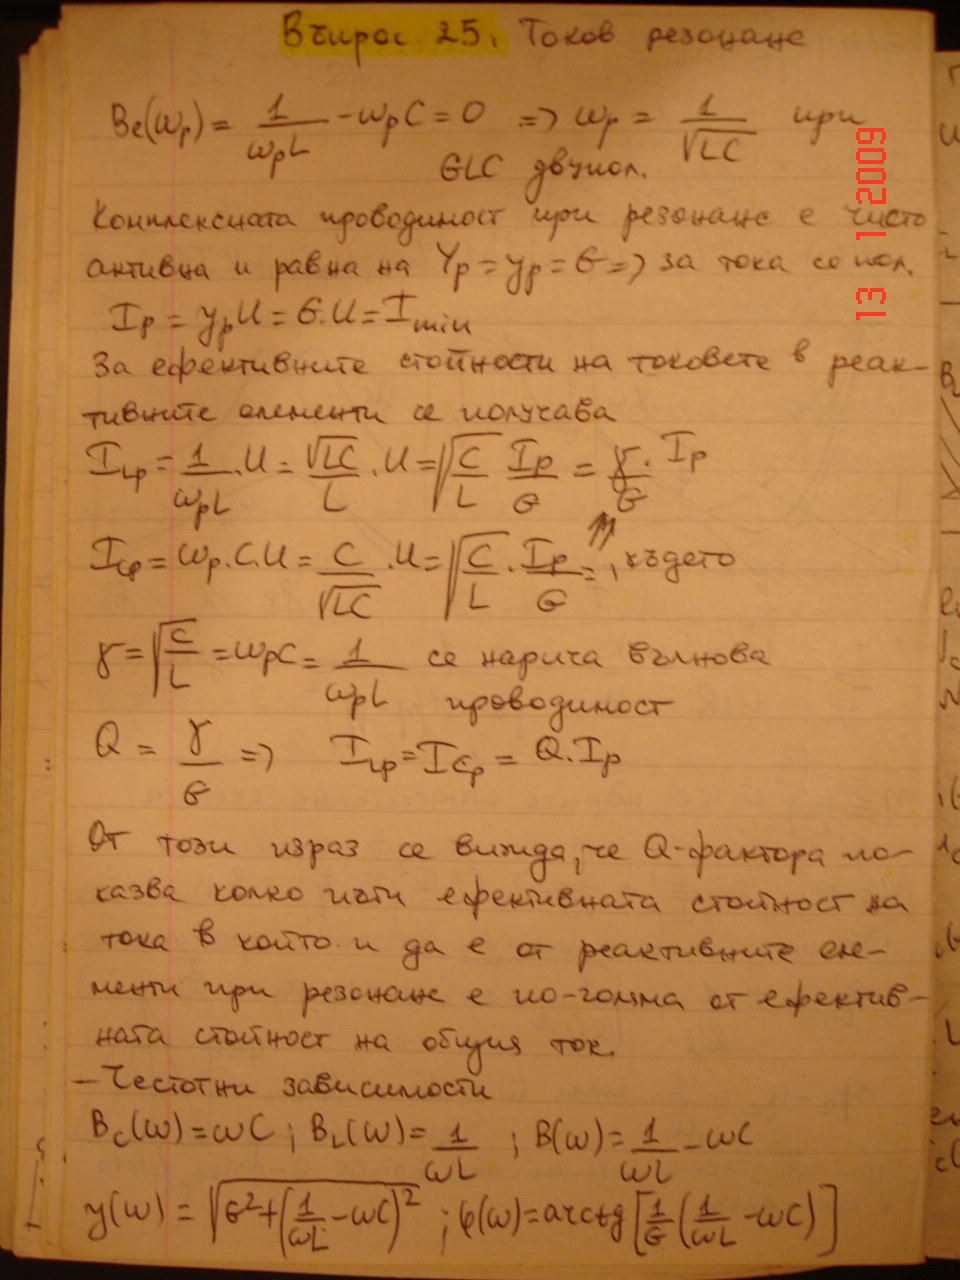 Въпрос 25. Токов резонанс
Be(ωp) = 1/(ωpL) - ωpC = 0 => ωp = 1/√(LC) при
GLC двупол.
Комплексната проводимост при резонанс е чисто
активна и равна на Yp = yp = G => за тока се пол.
Ip = ypU = G.U = Imin
За ефективните стойности на токовете в реак-
тивните елементи се получава
ILp = 1/(ωpL) .U = √(LC)/L .U = √(C/L) Ip/G = γ/G . Ip
ICp = ωp.C.U = C/√(LC) .U = √(C/L) . Ip/G = , където
γ = √(C/L) = ωpC = 1/(ωpL) се нарича вълнова
проводимост
Q = γ/G => ILp = ICp = Q.Ip
От този израз се вижда, че Q-фактора по-
казва колко пъти ефективната стойност на
тока в който и да е от реактивните еле-
менти при резонанс е по-голяма от ефектив-
ната стойност на общия ток.
- Честотни зависимости
BC(ω) = ωC ; BL(ω) = 1/(ωL) ; B(ω) = 1/(ωL) - ωC
y(ω) = √(G²+(1/(ωL) - ωC)²) ; φ(ω) = arctg[1/G (1/(ωL) - ωC)]
13 1 2009